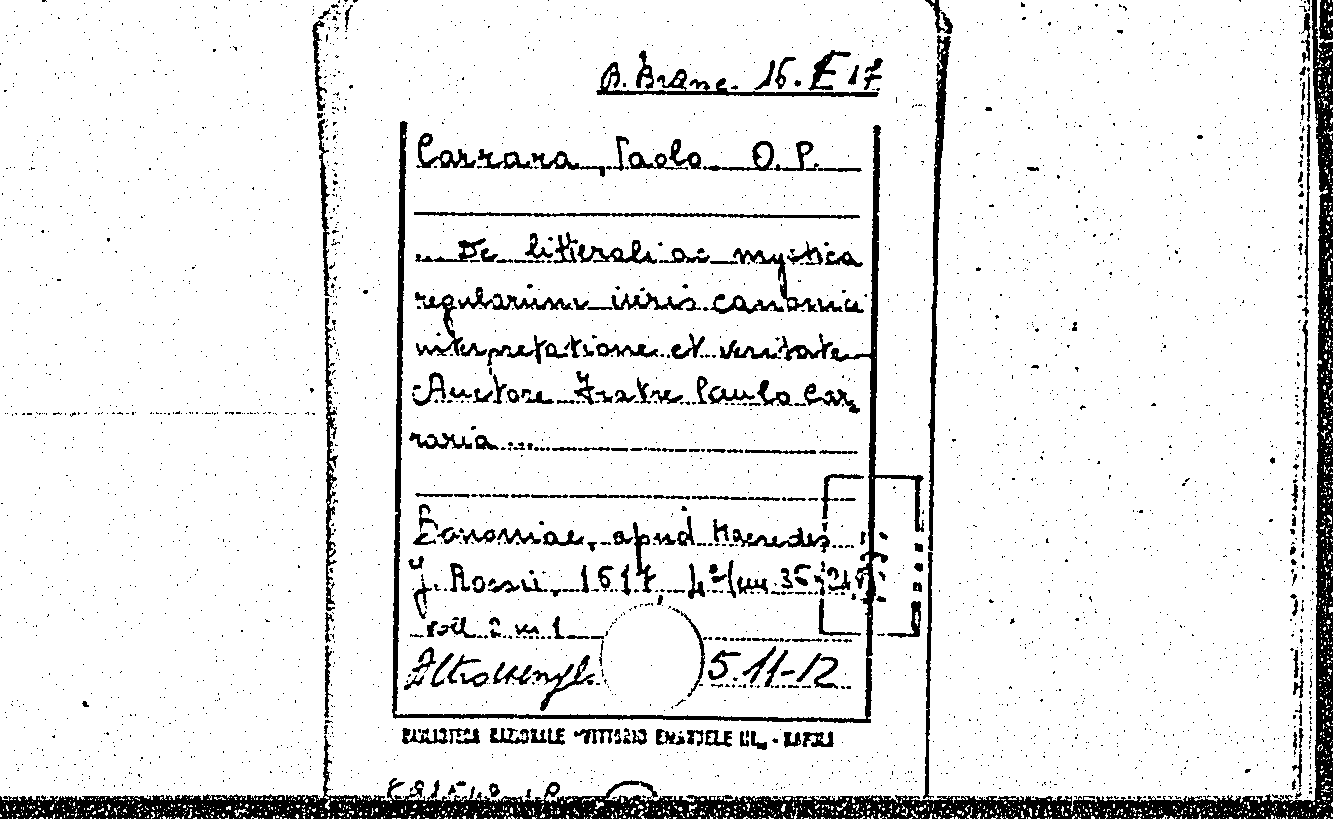 B. Branc. 16. E 17
Carrara, Paolo O. P.
... De litterali ac mystica
regularum iuris canonici
interpretatione et veritate
Auctore Fratre Paulo Car,
raria ...
Bononiae, apud Haeredes
J. Rossii, 1617 4º
voll 2 in 1
5.11-12
BIBLIOTECA NAZIONALE "VITTORIO EMANUELE III" - NAPOLI